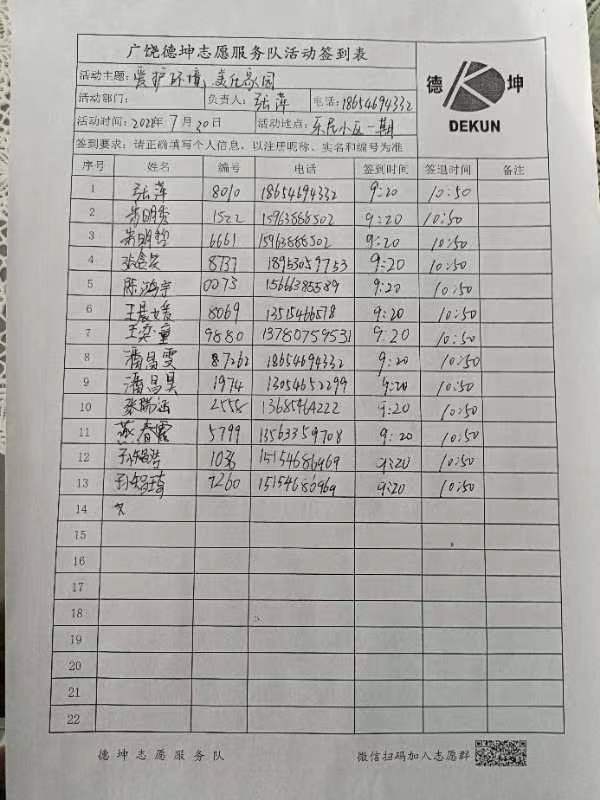 广饶德坤志愿服务队活动签到表
德 坤
DEKUN
活动主题: 爱护环境,美化家园
活动部门: 负责人: 张萍 电话: 18654694332
活动时间: 2021年7月30日 活动地点: 乐民小区一期
签到要求: 请正确填写个人信息, 以注册昵称、实名和编号为准
序号 姓名 编号 电话 签到时间 签退时间 备注
1 张萍 8010 18654694332 9:20 10:50
2 1522 15963888502 9:20 10:50
3 6661 15963888502 9:20 10:50
4 8737 18953059753 9:20 10:50
5 陈鸿宇 0075 15666385589 9:20 10:50
6 王晨媛 8069 13515466578 9:20 10:50
7 王奕童 9880 13780759531 9:20 10:50
8 潘昌雯 87262 18654694332 9:20 10:50
9 潘昌昊 1974 13054652299 9:20 10:50
10 2558 13685464222 9:20 10:50
11 燕春霞 5799 13563359708 9:20 10:50
12 1036 15154686969 9:20 10:50
13 7260 15154686969 9:20 10:50
14
15
16
17
18
19
20
21
22
德坤志愿服务队 微信扫码加入志愿群